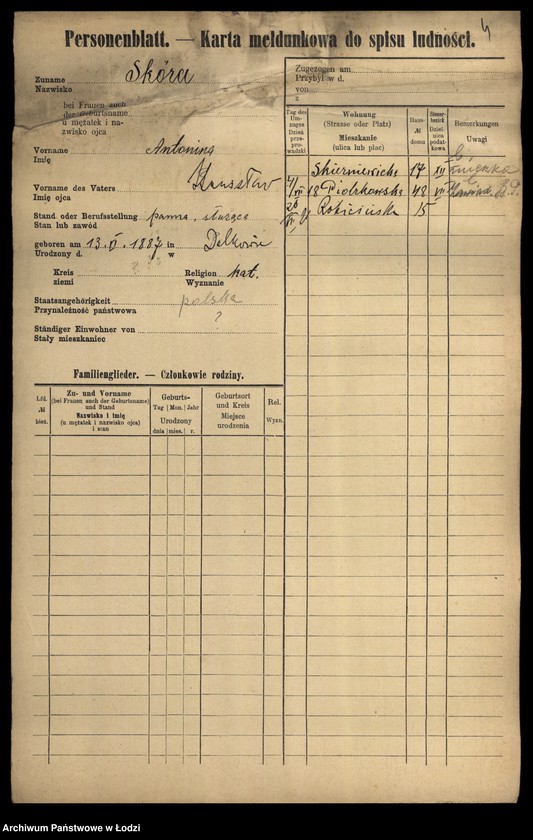 4
Personenblatt. — Karta meldunkowa do spisu ludności.
Zuname Skóra
Nazwisko
bei Frauen auch
der Geburtsname
u mężatek i na-
zwisko ojca
Vorname Antonina
Imię
Vorname des Vaters
Imię ojca
Stand oder Berufsstellung panna, służąca
Stan lub zawód
geboren am 13. VI. 1887 in
Urodzony d. w
Kreis Religion kat.
ziemi Wyznanie
Staatsangehörigkeit polska
Przynależność państwowa ?
Ständiger Einwohner von
Stały mieszkaniec
Familienglieder. — Członkowie rodziny.
Lfd. № bież.
Zu- und Vorname
(bei Frauen auch der Geburtsname)
und Stand
Nazwisko i imię
(u mężatek i nazwisko ojca)
i stan
Geburts-
Tag Mon. Jahr
Urodzony
dnia mies. r.
Geburtsort
und Kreis
Miejsce
urodzenia
Rel.
Wyzn.
Zugezogen am
Przybył w d.
von
z
Tag des
Um-
zuges
Dzień
prze-
prowadzki
Wohnung
(Strasse oder Platz)
Mieszkanie
(ulica lub plac)
Haus-
№
domu
Steuer-
bezirk
Dziel-
nica
podat-
kowa
Bemerkungen
Uwagi
17 XII
18 Piotrkowska 48 VII
Rokicińska 15
Archiwum Państwowe w Łodzi